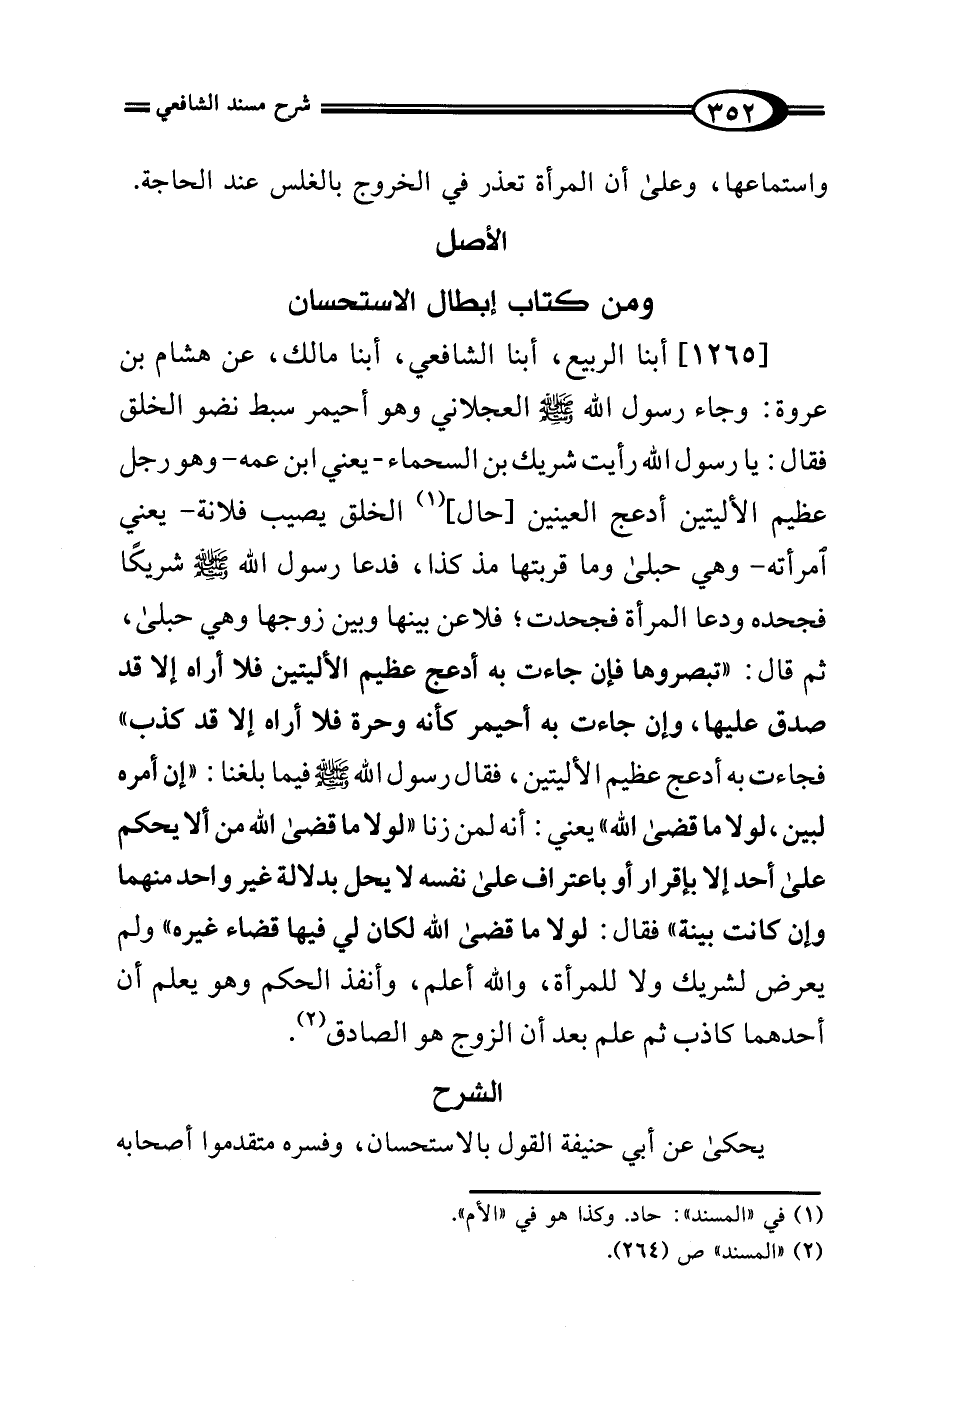 ٣٥٢ شرح مسند الشافعي
واستماعها، وعلىٰ أن المرأة تعذر في الخروج بالغلس عند الحاجة.
الأصل
ومن كتاب إبطال الاستحسان
[١٢٦٥] أبنا الربيع، أبنا الشافعي، أبنا مالك، عن هشام بن
عروة: وجاء رسول الله ﷺ العجلاني وهو أحيمر سبط نضو الخلق
فقال: يا رسول الله رأيت شريك بن السحماء -يعني ابن عمه- وهو رجل
عظيم الأليتين أدعج العينين [حال](١) الخلق يصيب فلانة- يعني
ٱمرأته- وهي حبلىٰ وما قربتها مذ كذا، فدعا رسول الله ﷺ شريكًا
فجحده ودعا المرأة فجحدت؛ فلاعن بينها وبين زوجها وهي حبلىٰ،
ثم قال: «تبصروها فإن جاءت به أدعج عظيم الأليتين فلا أراه إلا قد
صدق عليها، وإن جاءت به أحيمر كأنه وحرة فلا أراه إلا قد كذب»
فجاءت به أدعج عظيم الأليتين، فقال رسول الله ﷺ فيما بلغنا: «إن أمره
لبين، لولا ما قضىٰ الله» يعني: أنه لمن زنا «لولا ما قضىٰ الله من ألا يحكم
علىٰ أحد إلا بإقرار أو باعتراف علىٰ نفسه لا يحل بدلالة غير واحد منهما
وإن كانت بينة» فقال: لولا ما قضىٰ الله لكان لي فيها قضاء غيره» ولم
يعرض لشريك ولا للمرأة، والله أعلم، وأنفذ الحكم وهو يعلم أن
أحدهما كاذب ثم علم بعد أن الزوج هو الصادق(٢).
الشرح
يحكىٰ عن أبي حنيفة القول بالاستحسان، وفسره متقدموا أصحابه
(١) في «المسند»: حاد. وكذا هو في «الأم».
(٢) «المسند» ص (٢٦٤).